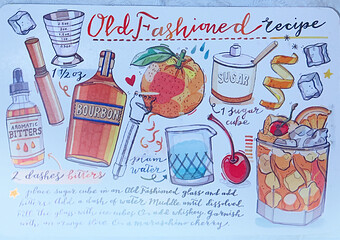 Old Fashioned recipe
1 1/2 oz
BOURBON
SUGAR
1 sugar
cube
AROMATIC
BITTERS
plain
water
2 dashes bitters
place sugar cube in an Old Fashioned glass and add
bitters. Add a dash of water. Muddle until dissolved
Fill the glass with ice cubes & add whiskey. Garnish
with an orange slice & a maraschino cherry.